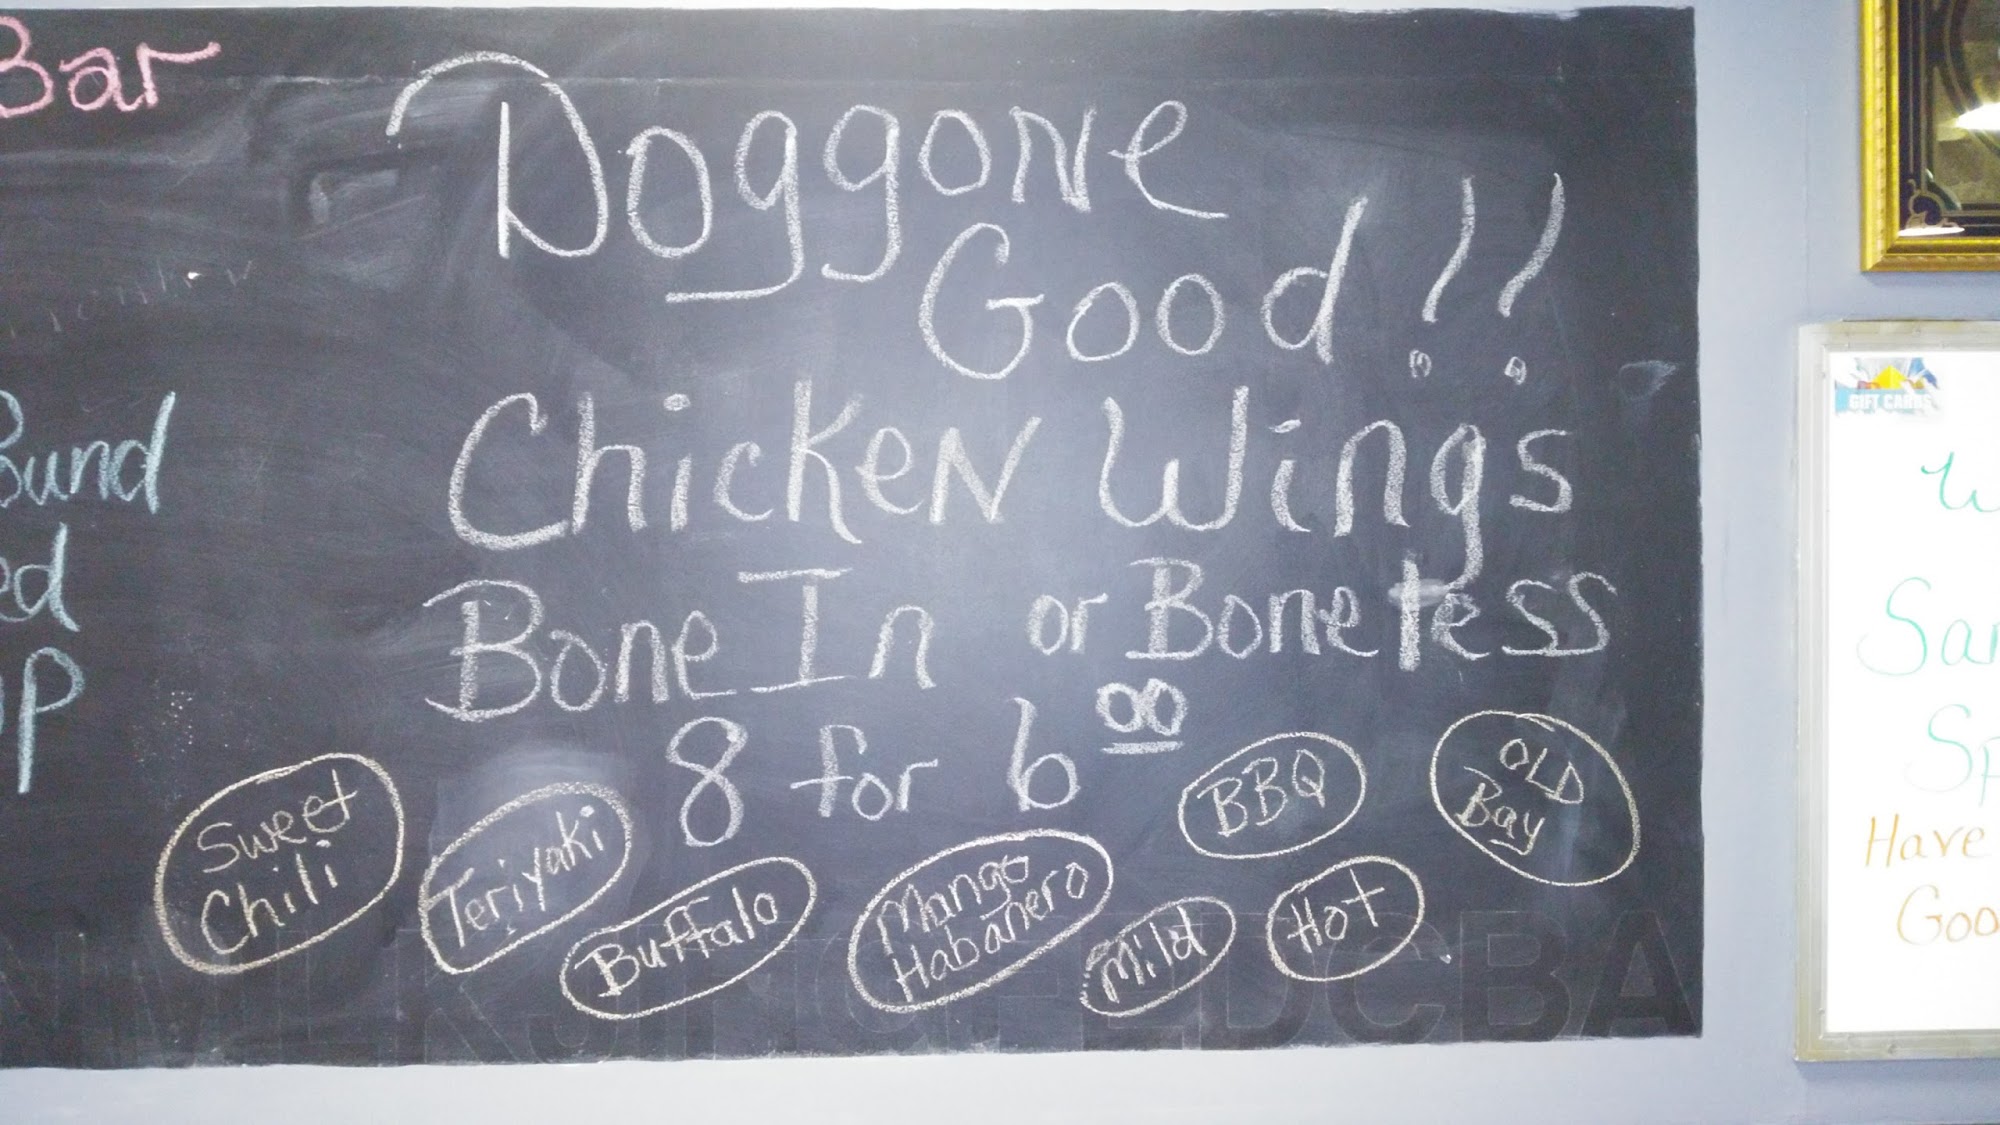 Bar
Doggone
Good!!
Chicken Wings
Bone In or Boneless
8 for 6 00
Sweet
Chili
Teriyaki
Buffalo
Mango
Habañero
Mild
BBQ
Hot
OLD
Bay
GIFT CARDS
Have